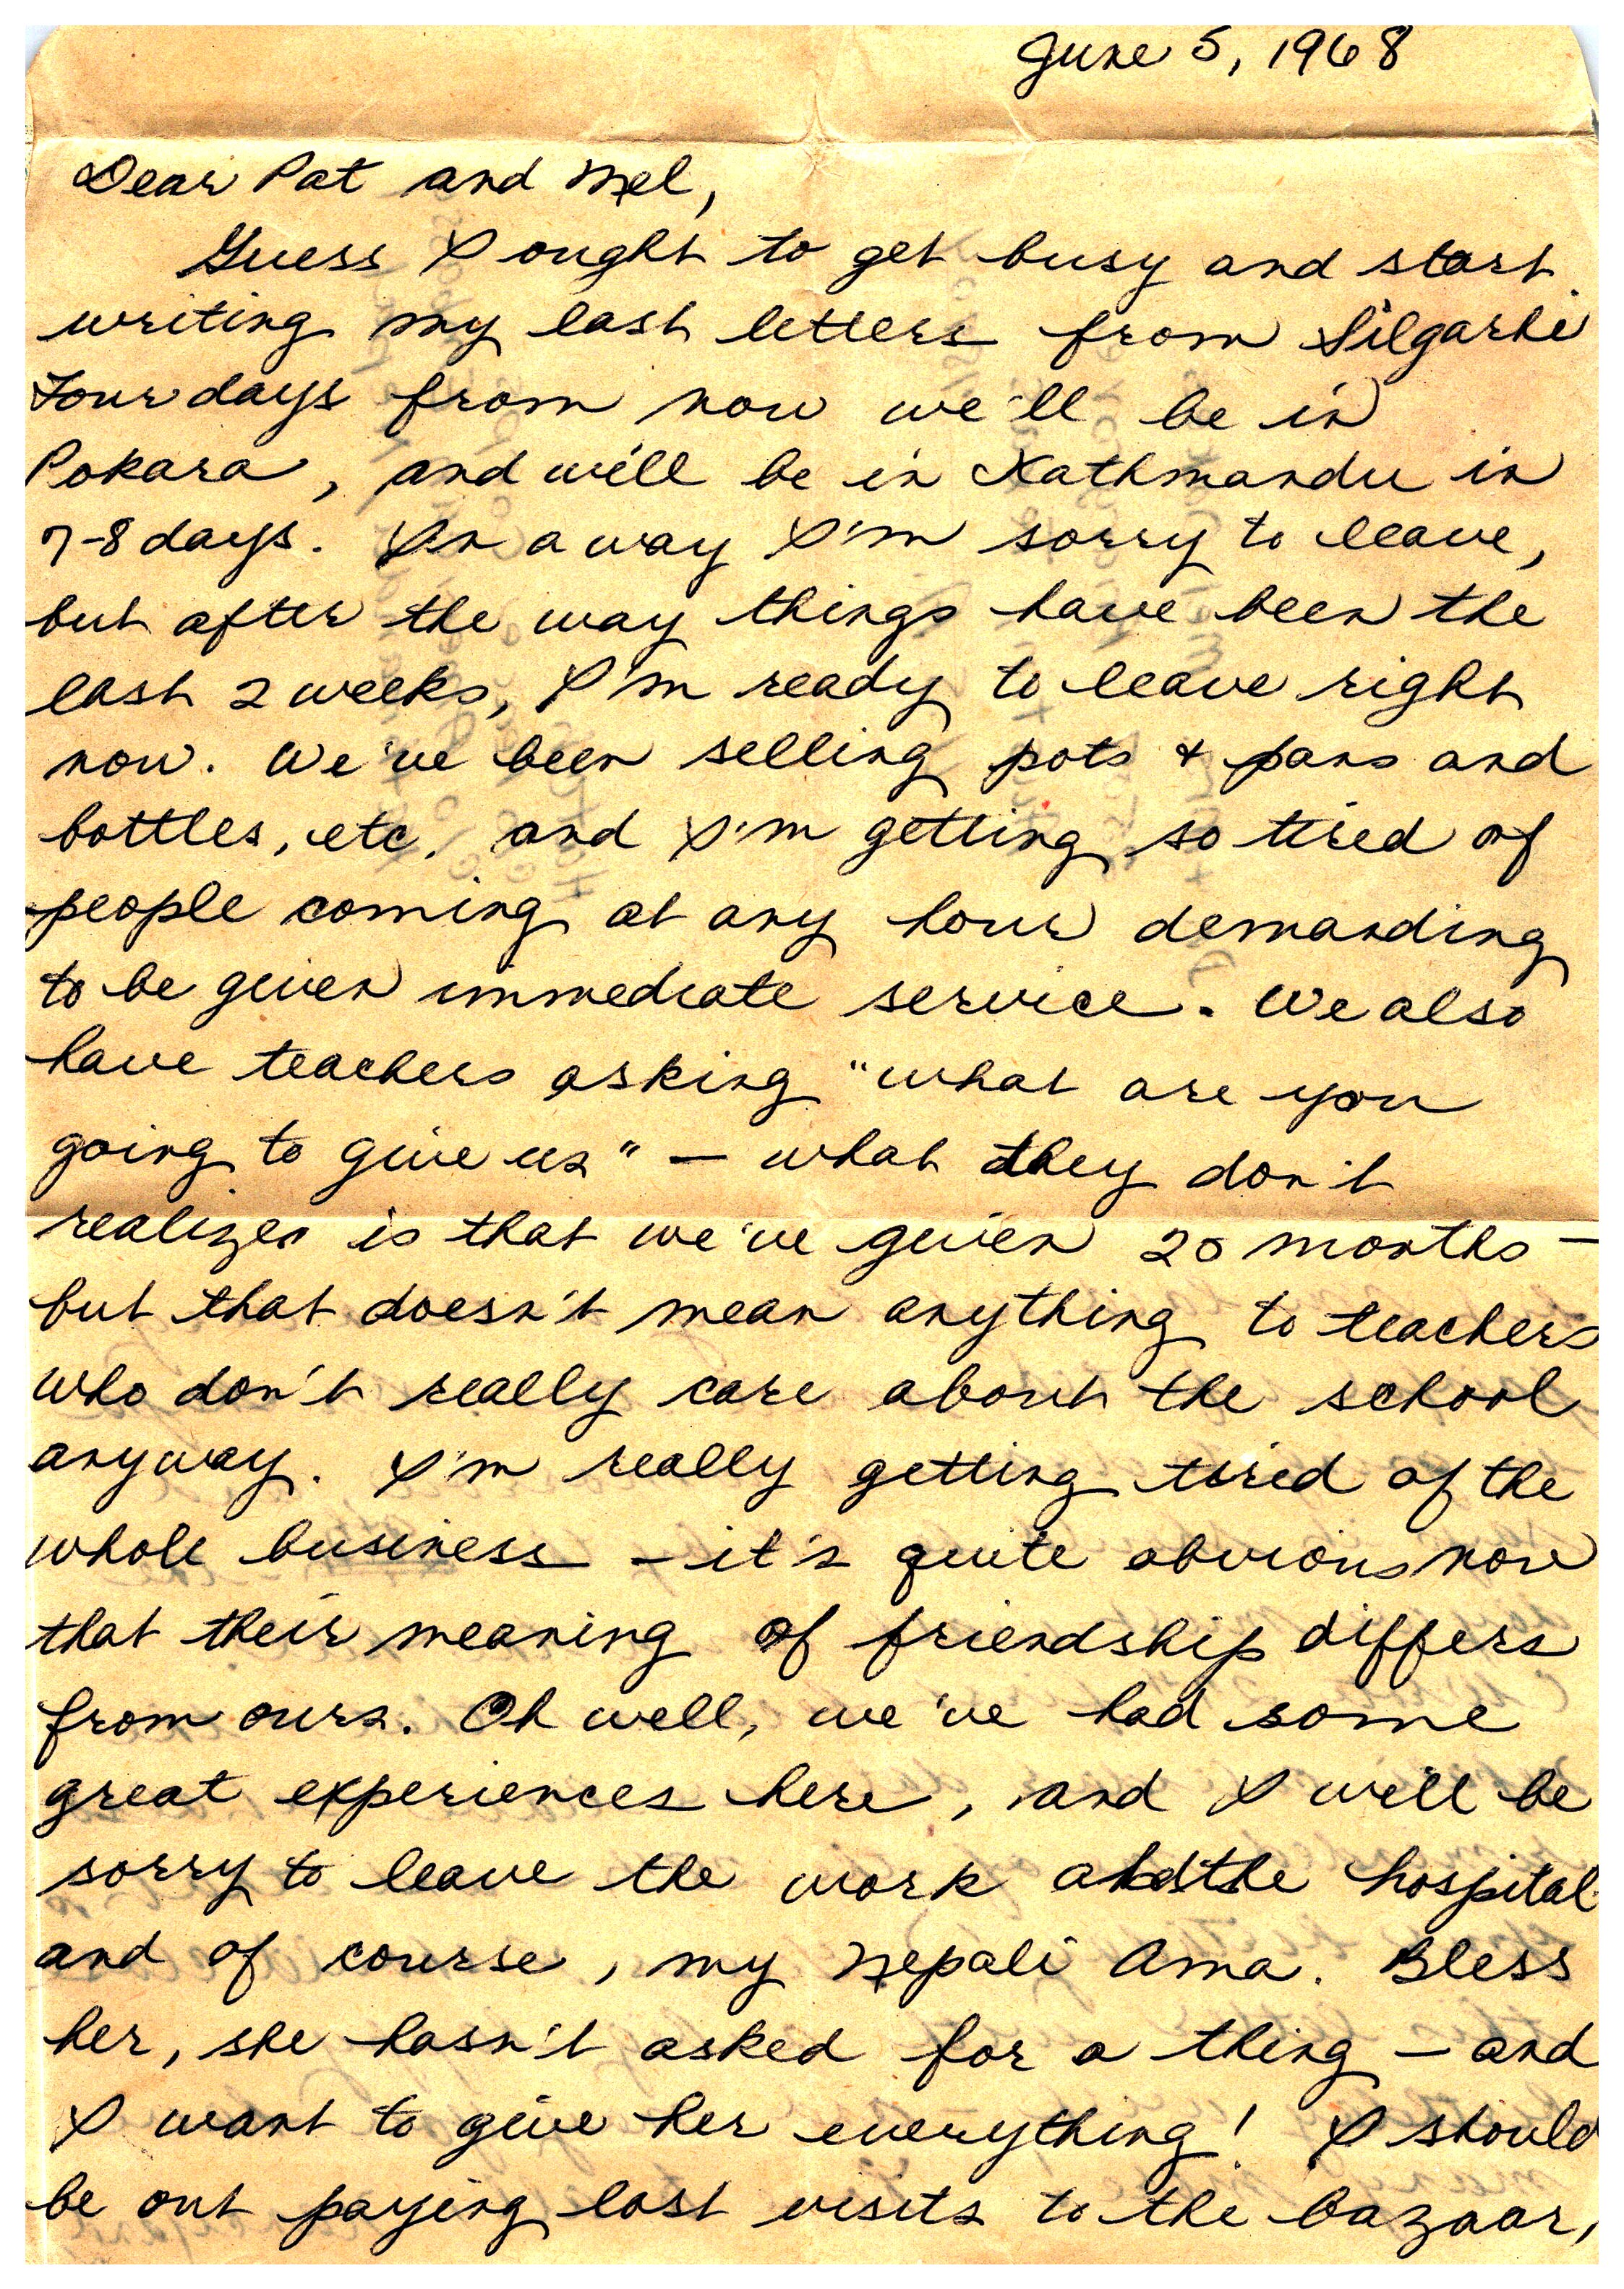 June 5, 1968
Dear Pat and Mel,
Guess I ought to get busy and start
writing my last letters from Silgarhi.
Four days from now we'll be in
Pokara, and will be in Kathmandu in
7-8 days. In a way I'm sorry to leave,
but after the way things have been the
last 2 weeks, I'm ready to leave right
now. We've been selling pots + pans and
bottles, etc. and I'm getting so tired of
people coming at any hour demanding
to be given immediate service. We also
have teachers asking "what are you
going to give us" — what they don't
realize is that we've given 20 months —
but that doesn't mean anything to teachers
who don't really care about the school
anyway. I'm really getting tired of the
whole business — it's quite obvious now
that their meaning of friendship differs
from ours. Oh well, we've had some
great experiences here, and I will be
sorry to leave the work and the hospital
and of course, my Nepali Ama. Bless
her, she hasn't asked for a thing — and
I want to give her everything! I should
be out paying last visits to the bazaar,